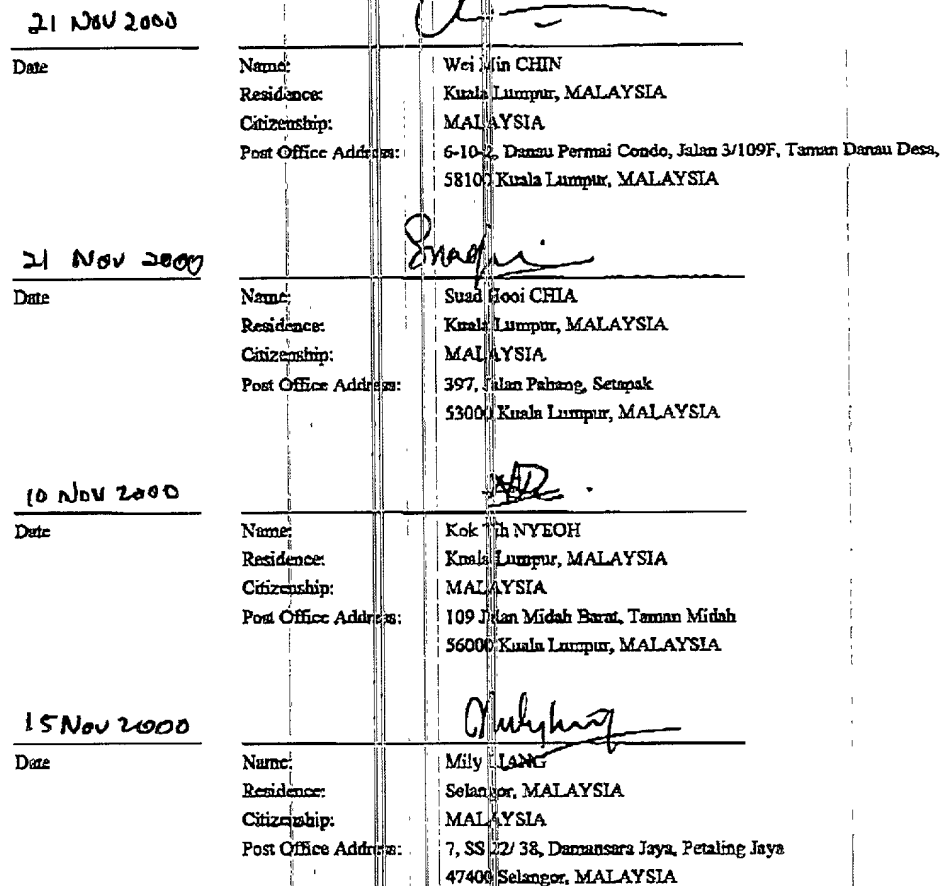 21 NOV 2000
Date
Name: Wei Min CHIN
Residence: Kuala Lumpur, MALAYSIA
Citizenship: MALAYSIA
Post Office Address: 6-10-2, Danau Permai Condo, Jalan 3/109F, Taman Danau Desa,
58100 Kuala Lumpur, MALAYSIA
21 Nov 2000
Date
Name: Suad Hooi CHIA
Residence: Kuala Lumpur, MALAYSIA
Citizenship: MALAYSIA
Post Office Address: 397, Jalan Pahang, Setapak
53000 Kuala Lumpur, MALAYSIA
10 NOV 2000
Date
Name: Kok NYEOH
Residence: Kuala Lumpur, MALAYSIA
Citizenship: MALAYSIA
Post Office Address: 109 Jalan Midah Barat, Taman Midah
56000 Kuala Lumpur, MALAYSIA
15 Nov 2000
Date
Name: Mily LIANG
Residence: Selangor, MALAYSIA
Citizenship: MALAYSIA
Post Office Address: 7, SS 22/ 38, Damansara Jaya, Petaling Jaya
47400 Selangor, MALAYSIA